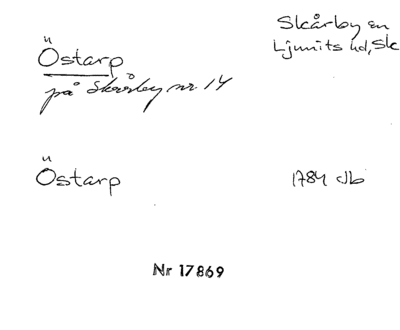 Östarp
Skårby sn
Ljunits hd, Sk
på Skårby nr 14
Östarp
1784 db
Nr 17869